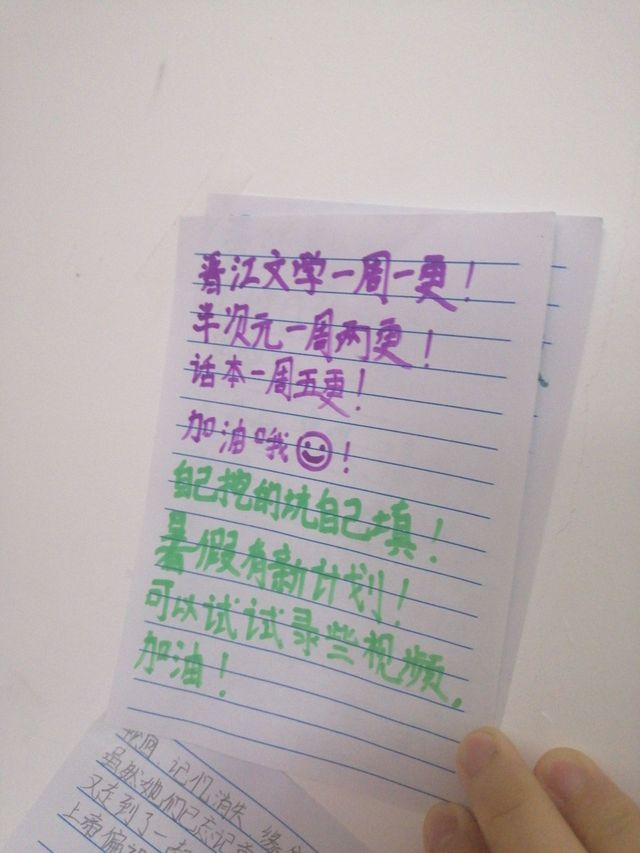 晋江文学一周一更！
半次元一周两更！
话本一周五更！
加油哦☺！
自己挖的坑自己填！
暑假有新计划！
可以试试录些视频。
加油！
记忆消失
虽然她们已忘记
又走到了一起
上帝偏